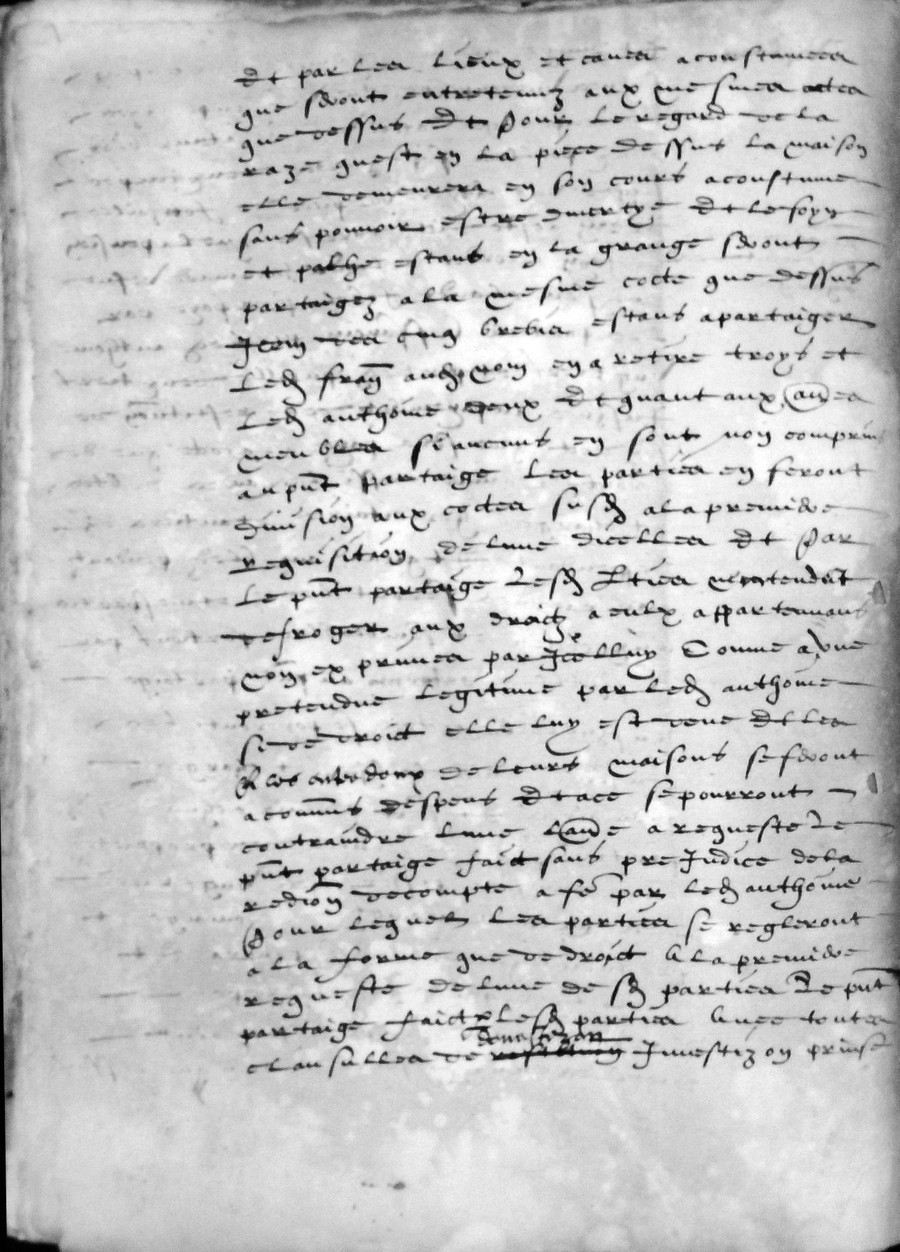 Et par les lieux et canes acoustumees
que seront entretenuz aux mesmes cottes
que dessus Et pour le regard de la
raze quest en la piece dessus la maison
elle demeurera en son cours acoustume
sans pouvoir estre divertye Et le foyn
et palhe estans en la grange seront
partaigez a la mesme cocte que dessus
Item des cinq brebis estans a partaiger
Led fran aud nom en a retire troys et
Led anthoine deux Et quant aux au es
meubles si aucuns en sont non comprins
au pnt partaige les parties en feront
division aux coctes susd a la premiere
requisition de lune dicelles Et Par
le pnt partaige lesd pties nentendent
desroger aux droictz a eulx appartenans
non exprimes par Icelluy Comme a une
pretendue legitime par led anthoine
si de droict elle luy est deue Et les
de leurs maisons se feront
a communs despens Et a ce se pourront
contraindre lune lau e a requeste le
pnt partaige faict sans preJudice de la
redion de compte a fe par led anthoine
Pour lequel les parties se regleront
a la forme que de droict A la premiere
requeste de lune desd parties Le pnt
partaige faict lesd parties Avec toutes
clausulles de donation Investizon prinse